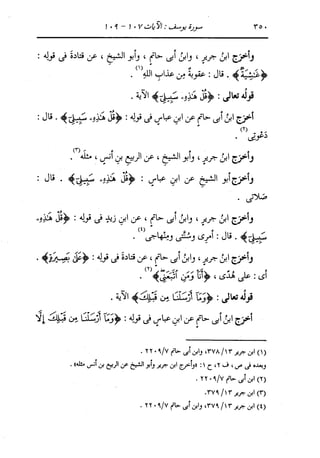 ٣٥٠ سورة يوسف : الآيات ١٠٧ - ١٠٩
وأخرج ابنُ جريرٍ ، وابنُ أبى حاتمٍ ، وأبو الشيخِ ، عن قتادةَ فى قوله :
﴿غَٰشِيَةٌ﴾ . قال : عقوبةٌ مِن عذابِ اللهِ(١) .
قولُه تعالى : ﴿قُلْ هَٰذِهِۦ سَبِيلِىٓ﴾ الآية .
أخرَج ابنُ أبى حاتمٍ عن ابنِ عباسٍ فى قولِه : ﴿قُلْ هَٰذِهِۦ سَبِيلِىٓ﴾ . قال :
دَعْوتى(٢) .
وأخرَج ابنُ جريرٍ ، وأبو الشيخِ ، عن الربيعِ بنِ أنسٍ ، مثلَه(٣) .
وأخرَج أبو الشيخِ عن ابنِ عباسٍ : ﴿قُلْ هَٰذِهِۦ سَبِيلِىٓ﴾ . قال :
صلاتى .
وأخرَج ابنُ جريرٍ ، وابنُ أبى حاتمٍ ، عن ابنِ زيدٍ فى قوله : ﴿قُلْ هَٰذِهِۦ
سَبِيلِىٓ﴾ . قال : أمرى وسُنَّتى ومِنْهاجى(٤) .
وأخرَج ابنُ جريرٍ ، وابنُ أبى حاتمٍ ، عن قتادةَ فى قولِه : ﴿عَلَىٰ بَصِيرَةٍ﴾ .
أى : على هُدًى ، ﴿أَنَا۠ وَمَنِ ٱتَّبَعَنِى﴾(٢) .
قولُه تعالى : ﴿وَمَآ أَرْسَلْنَا مِن قَبْلِكَ﴾ الآية .
أخرَج ابنُ أبى حاتمٍ عن ابنِ عباسٍ فى قولِه : ﴿وَمَآ أَرْسَلْنَا مِن قَبْلِكَ إِلَّا
(١) ابن جرير ١٣/ ٣٧٨، وابن أبى حاتم ٧/ ٢٢٠٩ .
وبعده فى ص ، ف ٢، ح ١: «وأخرج ابن جرير وأبو الشيخ عن الربيع بن أنس مثله» .
(٢) ابن أبى حاتم ٧/ ٢٢٠٩ .
(٣) ابن جرير ١٣/ ٣٧٩.
(٤) ابن جرير ١٣/ ٣٧٩، وابن أبى حاتم ٧/ ٢٢٠٩ .